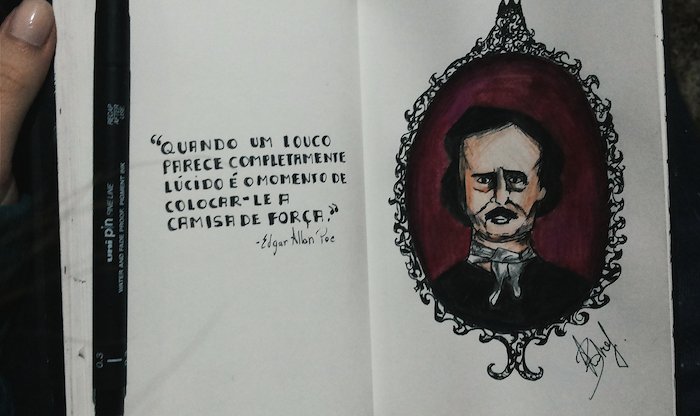 "QUANDO UM LOUCO
PARECE COMPLETAMENTE
LÚCIDO É O MOMENTO DE
COLOCAR-LE A
CAMISA DE FORÇA."
-Edgar Allan Poe
uni pin FINE LINE
WATER AND FADE PROOF, PIGMENT INK
0.3